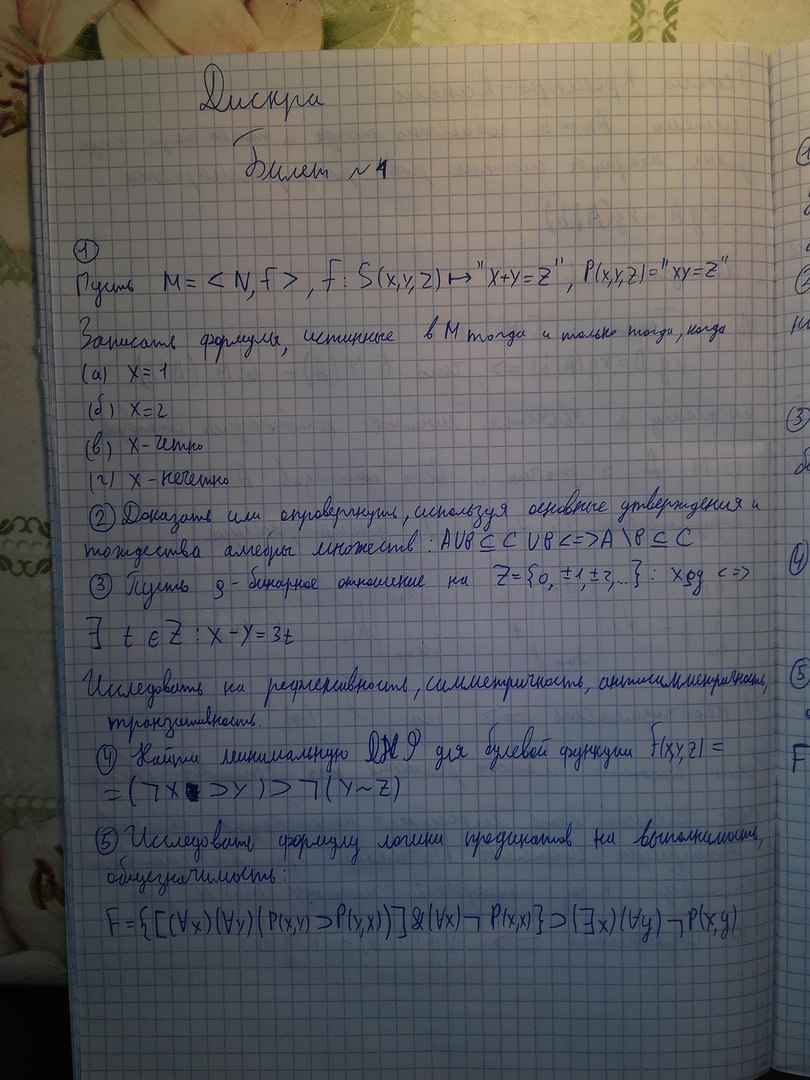 Дискра
Билет №1
①
Пусть M = < N, f >, f: S(x,y,z) ↦ "x+y=z", P(x,y,z)="xy=z"
Записать формулы, истинные в M тогда и только тогда, когда
(а) x=1
(б) x=2
(в) x-четно
(г) x-нечетно
② Доказать или опровергнуть, используя основные утверждения и
тождества алгебры множеств: A∪B ⊆ C ∪ B <=> A \ B ⊆ C
③ Пусть ρ-бинарное отношение на Z={0, ±1, ±2,...}: xρy <=>
∃ t ∈ Z : x-y=3t
Исследовать на рефлексивность, симметричность, антисимметричность,
транзитивность.
④ Найти минимальную ДНФ для булевой функции f(x,y,z) =
= (¬x ⊃ y) ⊃ ¬(y ~ z)
⑤ Исследовать формулу логики предикатов на выполнимость,
общезначимость:
F = {[(∀x)(∀y)(P(x,y) ⊃ P(y,x))] & (∀x) ¬ P(x,x)} ⊃ (∃x)(∀y) ¬ P(x,y)